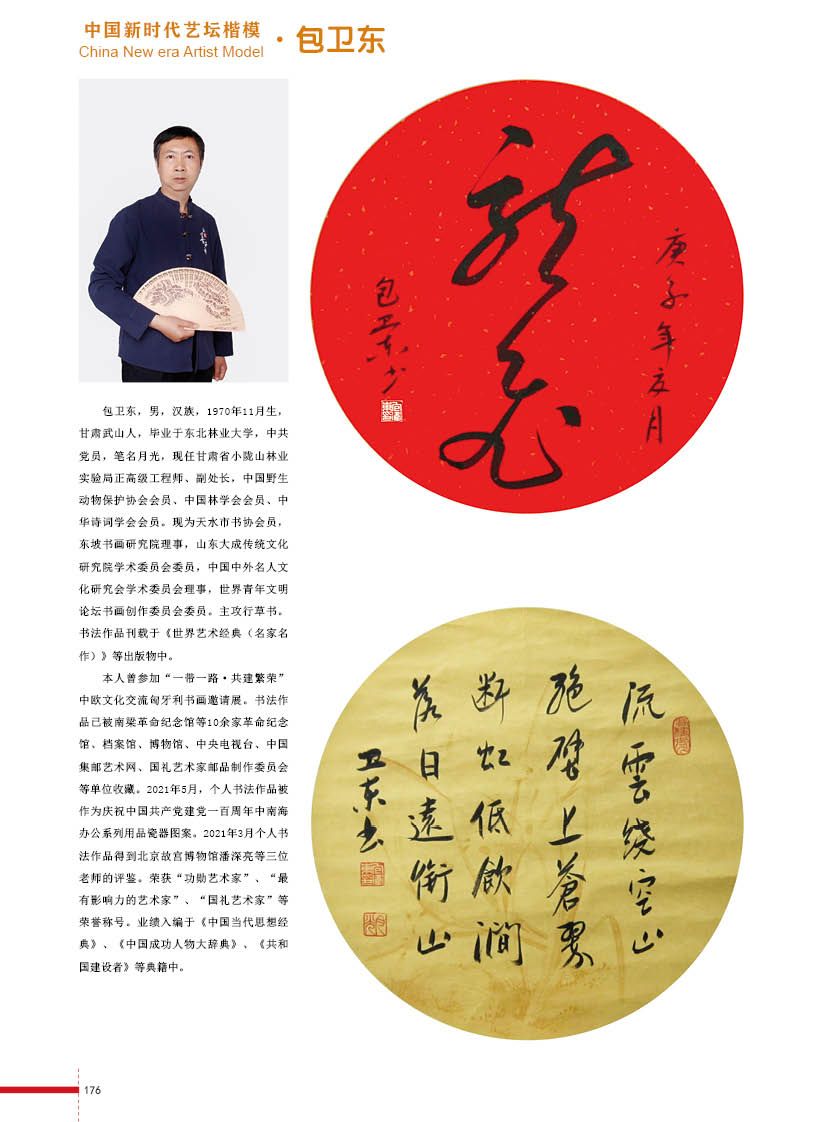 中国新时代艺坛楷模
China New era Artist Model
·包卫东
包卫东，男，汉族，1970年11月生，
甘肃武山人，毕业于东北林业大学，中共
党员，笔名月光，现任甘肃省小陇山林业
实验局正高级工程师、副处长，中国野生
动物保护协会会员、中国林学会会员、中
华诗词学会会员。现为天水市书协会员，
东坡书画研究院理事，山东大成传统文化
研究院学术委员会委员，中国中外名人文
化研究会学术委员会理事，世界青年文明
论坛书画创作委员会委员。主攻行草书。
书法作品刊载于《世界艺术经典（名家名
作）》等出版物中。
本人曾参加“一带一路·共建繁荣”
中欧文化交流匈牙利书画邀请展。书法作
品已被南梁革命纪念馆等10余家革命纪念
馆、档案馆、博物馆、中央电视台、中国
集邮艺术网、国礼艺术家邮品制作委员会
等单位收藏。2021年5月，个人书法作品被
作为庆祝中国共产党建党一百周年中南海
办公系列用品瓷器图案。2021年3月个人书
法作品得到北京故宫博物馆潘深亮等三位
老师的评鉴。荣获“功勋艺术家”、“最
有影响力的艺术家”、“国礼艺术家”等
荣誉称号。业绩入编于《中国当代思想经
典》、《中国成功人物大辞典》、《共和
国建设者》等典籍中。
庚子年 月
龙飞
包卫东书
流雲绕空山
绝壁上蒼翠
断虹低飲澗
落日遠衔山
卫东书
176